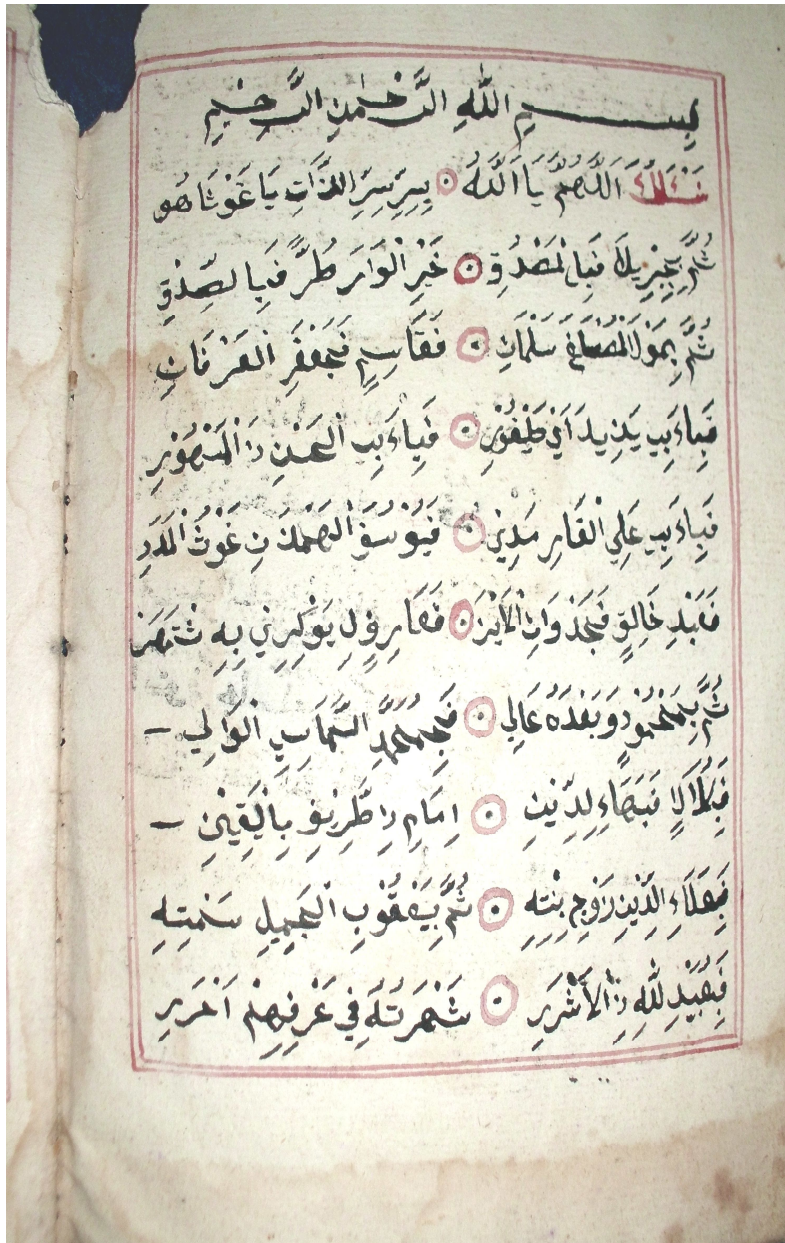 بِسْمِ اللّٰهِ الرَّحْمٰنِ الرَّحِيْمِ
نَسْئَلُكَ اَللّٰهُمَّ يَا اَللّٰهُ ۞ بِسِرِّ سِرِّ الذَّاتِ يَا غَوْثَاهُو
ثُمَّ بِجِبْرِيْلَ فَبِالْمَصْدُقِ ۞ خَيْرِ الْوَارَ طُرًّ فَبِالصِّدْقِ
ثُمَّ بِمَوْلَ الْمُصْطَفَى سَلْمَانِ ۞ فَقَاسِمٍ فَجَعْفَرِ الْعَرْفَانِ
فَبِاءَبِي يَزِيدَ اَيْ طَيْفُوْرِ ۞ فَبِاءَبِ الْحَسَنِ ذَ الْمَشْهُوْرِ
فَبِاءَبِي عَلِي الْفَارِ مَدِيْ ۞ فَيُوْسُفَ الْهَمْدَنِ غَوْثُ الْمَدَدِ
فَعَبْدِ خَالِقٍ فَجَذْوَانِ الْاَبَرْ ۞ فَعَارِفٍ لِ يَوْكِرِيْ بِهِ شْتَهَرْ
ثُمَّ بِمَحْمُوْدٍ وَبَعْدَهُ عَالِي ۞ فَبِمُحَمَّدِ السَّمَاسِي الْوَالِي
فَبِكُلَالٍ فَبَهَاءِ لِدِّيْنِ ۞ اِمَامِ ذِ طَّرِيْقِ بِالْيَقِيْنِ
فَبِعَلَاءِ الدِّيْنِ زَوْجِ بِنْتِهِ ۞ ثُمَّ بِيَعْقُوْبِ الْجَمِيْلِ سَمْتِهِ
فَبِعُبَيْدِ للّٰهِ ذِ الْاَشْرَرِ ۞ شَهْرَتُهُ فِي عَرْفِهِمْ اَحْرَرِ